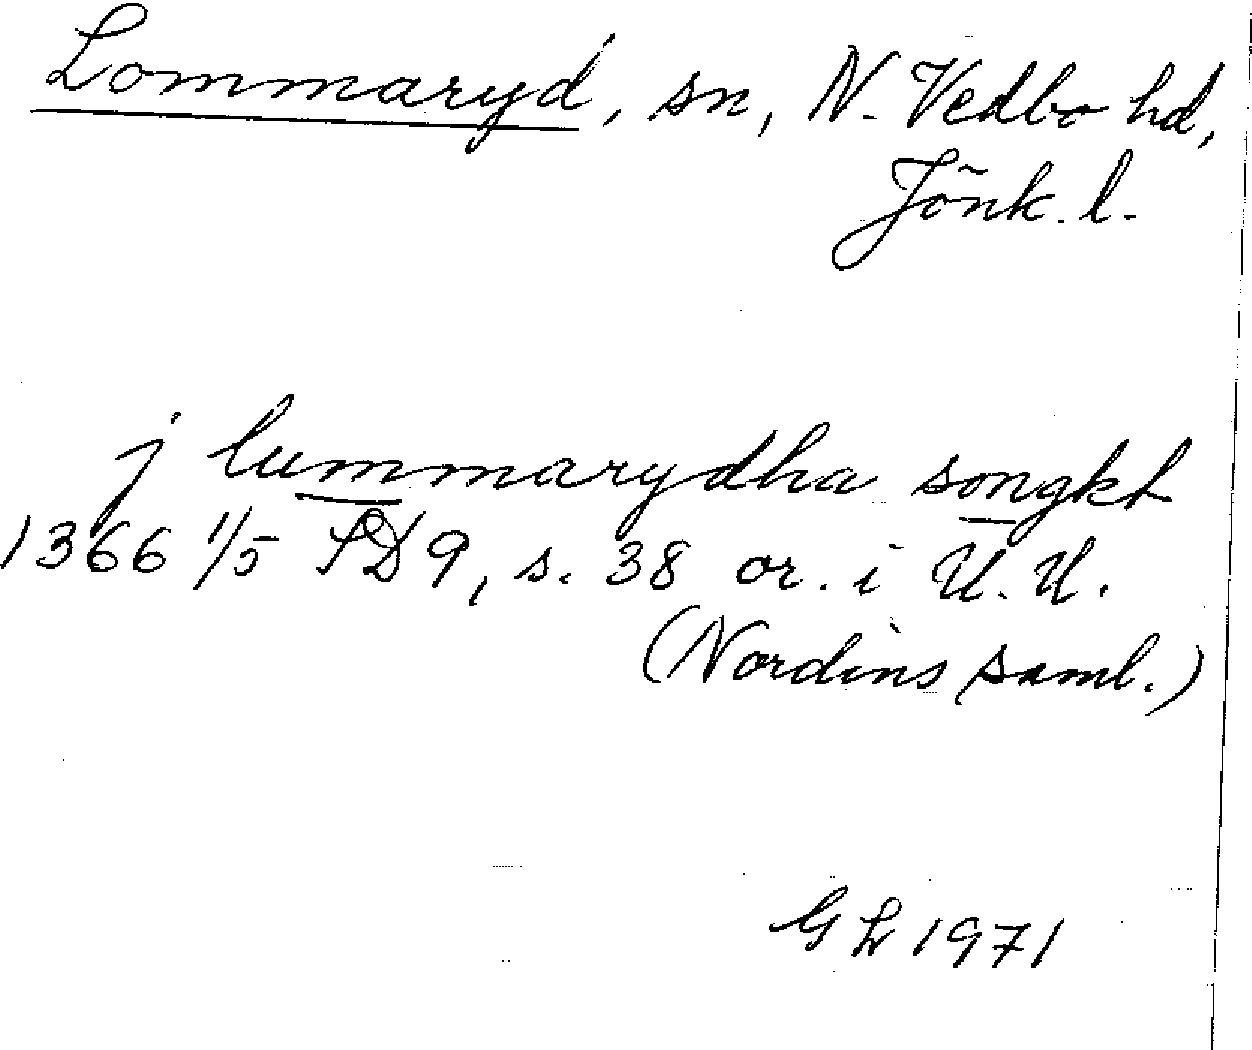 Lommaryd, sn, N. Vedbo hd,
Jönk. l.
j lummarydha songkh
1366 1/5 SD 9, s. 38 or. i U. U.
(Nordins saml.)
GL 1971